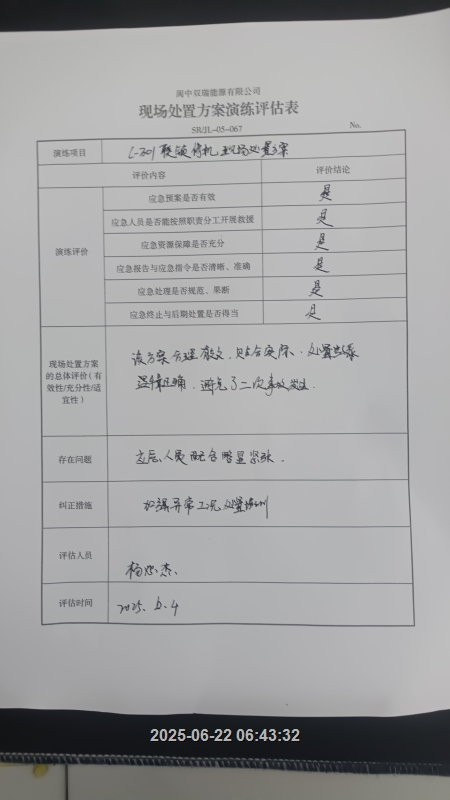 阆中双瑞能源有限公司
现场处置方案演练评估表
SR/JL-05-067
No.
演练项目
C-301联锁停机现场处置方案
评价内容
评价结论
演练评价
应急预案是否有效
是
应急人员是否能按照职责分工开展救援
是
应急资源保障是否充分
是
应急报告与应急指令是否清晰、准确
是
应急处理是否规范、果断
是
应急终止与后期处置是否得当
是
现场处置方案
的总体评价(有
效性/充分性/适
宜性)
该方案合理有效,贴合实际,处置
正确,避免了二次事故发生.
存在问题
应急人员配合略显紧张.
纠正措施
加强异常工况处置培训
评估人员
杨 杰.
评估时间
2025.6.4
2025-06-22 06:43:32